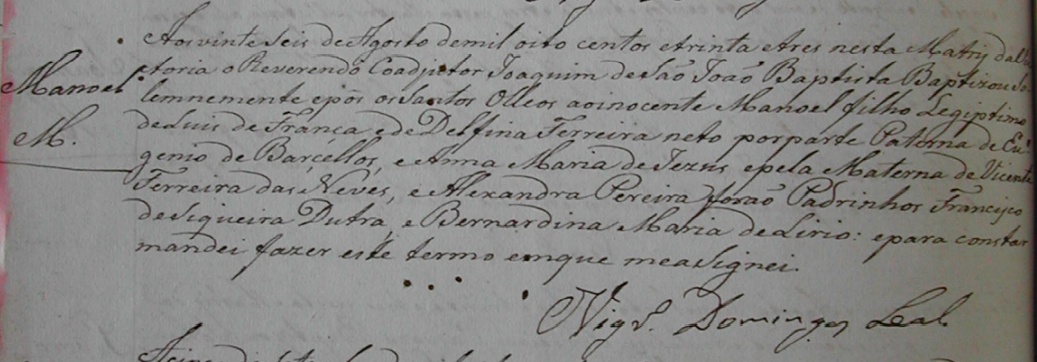 Aos vinte seis de Agosto de mil oito centos e trinta e tres nesta Matriz da Vi
Manoel
ctoria o Reverendo Coadjutor Joaquim de São João Baptista Baptizou So
lemnemente e pôs os Santos Olleos ao inocente Manoel filho Legiptimo
M.
de Luis de França, e de Delfina Ferreira neto por parte Paterna de Eu
genio de Barcellos, e Anna Maria de Jezus e pela Materna de Vicente
Ferreira das Neves, e Alexandra Pereira forão Padrinhos Francisco
de Siqueira Dutra, e Bernardina Maria de Lirio: e para constar
mandei fazer este termo em que me asignei.
Vigro. Domingos Leal